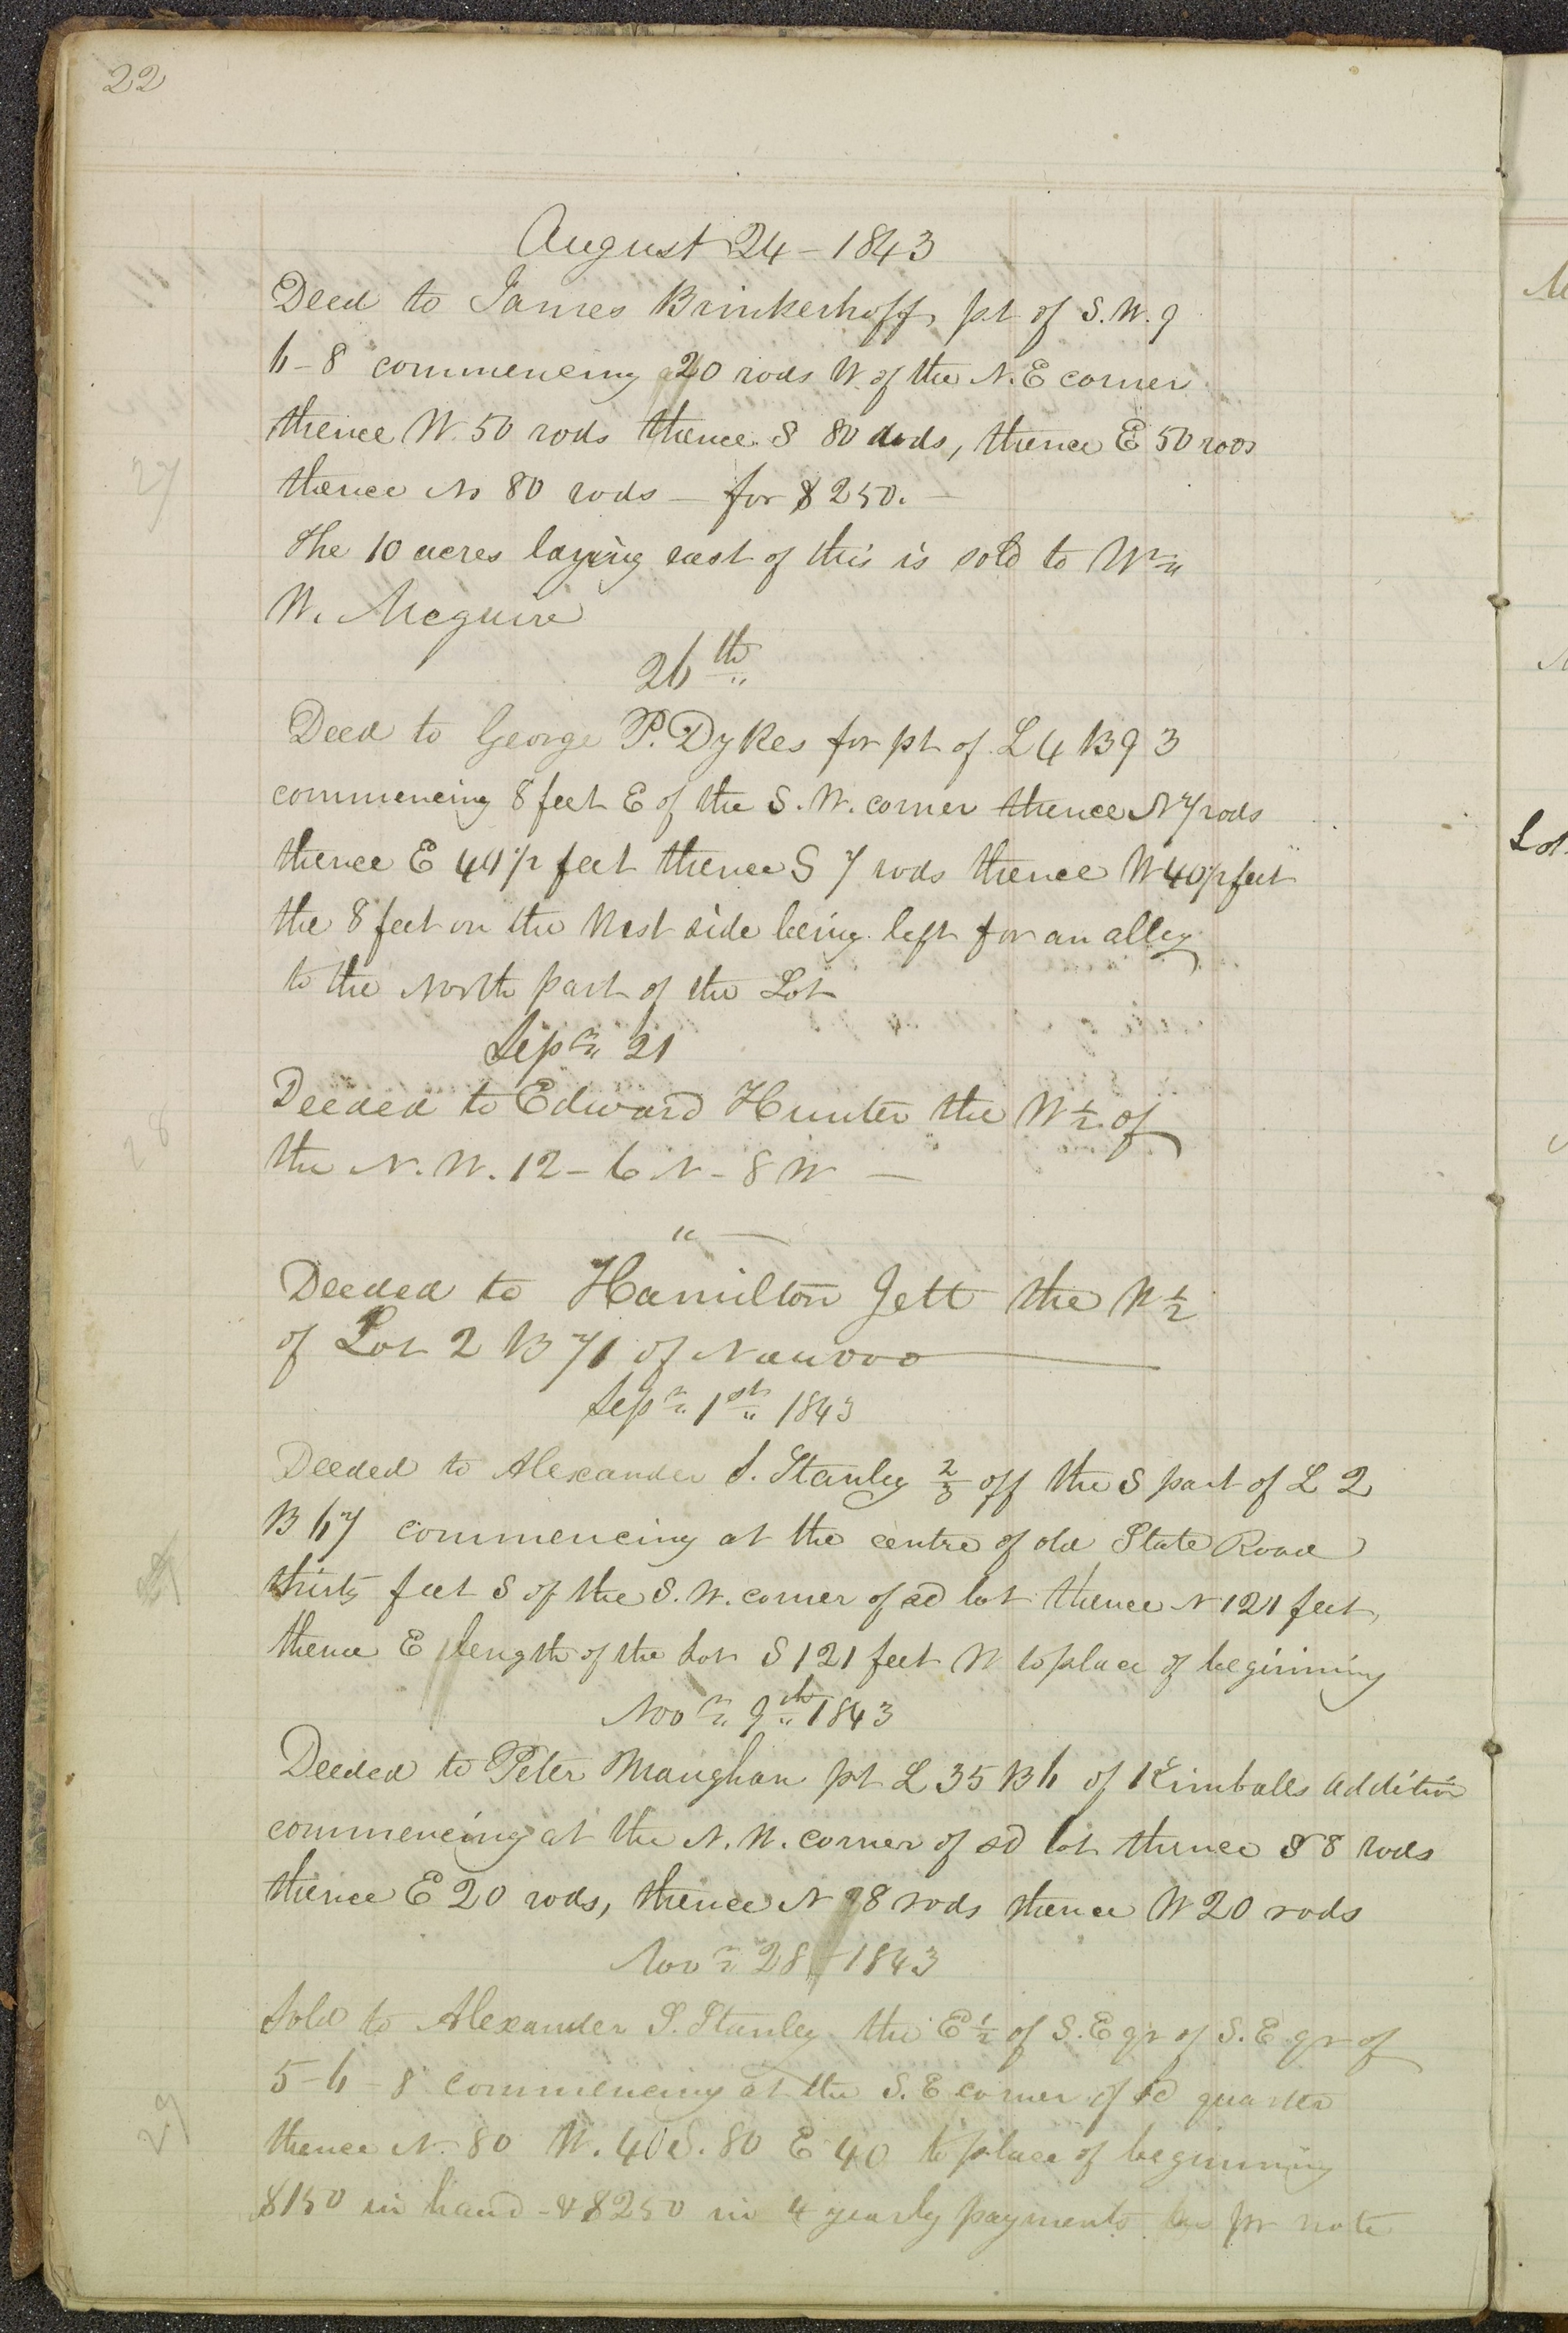 22
August 24 - 1843
Deed to James Brinkerhoff pt of S.W. 9
6-8 commencing 20 rods W. of the N.E corner
thence W. 50 rods thence S 80 rods, thence E 50 rods
27
thence N 80 rods - for $250. -
The 10 acres laying east of this is sold to Wm
W. Mcguire
26th
Deed to George P. Dykes for pt of L 4 B 93
commencing 8 feet E of the S.W. corner thence N 7 rods
thence E 441/2 feet thence S 7 rods thence W 401/2 feet
the 8 feet on the West side being left for an alley
to the North part of the Lot
Sepm 21
Deeded to Edward Hunter the W 1/2 of
28
the N.W. 12 - 6 N - 8 W -
" -
Deeded to Hamilton Jett the N 1/2
of Lot 2 B 71 of Nauvoo
Sepr 1st 1843
Deeded to Alexander S. Stanley 2/3 off the S part of L 2
B 67 commencing at the centre of old State Road
thirty feet S of the S.W. corner of sd lot thence N 121 feet,
thence E length of the Lot S 121 feet W to place of beginning
Novr 9th 1843
Deeded to Peter Maughan pt L 35 B 6 of Kimballs addition
commencing at the N.W. corner of sd lot thence S 8 rods
thence E 20 rods, thence N 8 rods thence W 20 rods
Novr 28 - 1843
Sold to Alexander S. Stanley the E 1/2 of S.E qr of S.E qr of
5-6-8 commencing at the S.E corner of sd quarter
29
thence N. 80 W. 40 S. 80 E 40 to place of beginning
$150 in hand - & $250 in 4 yearly payments as pr note
Lot